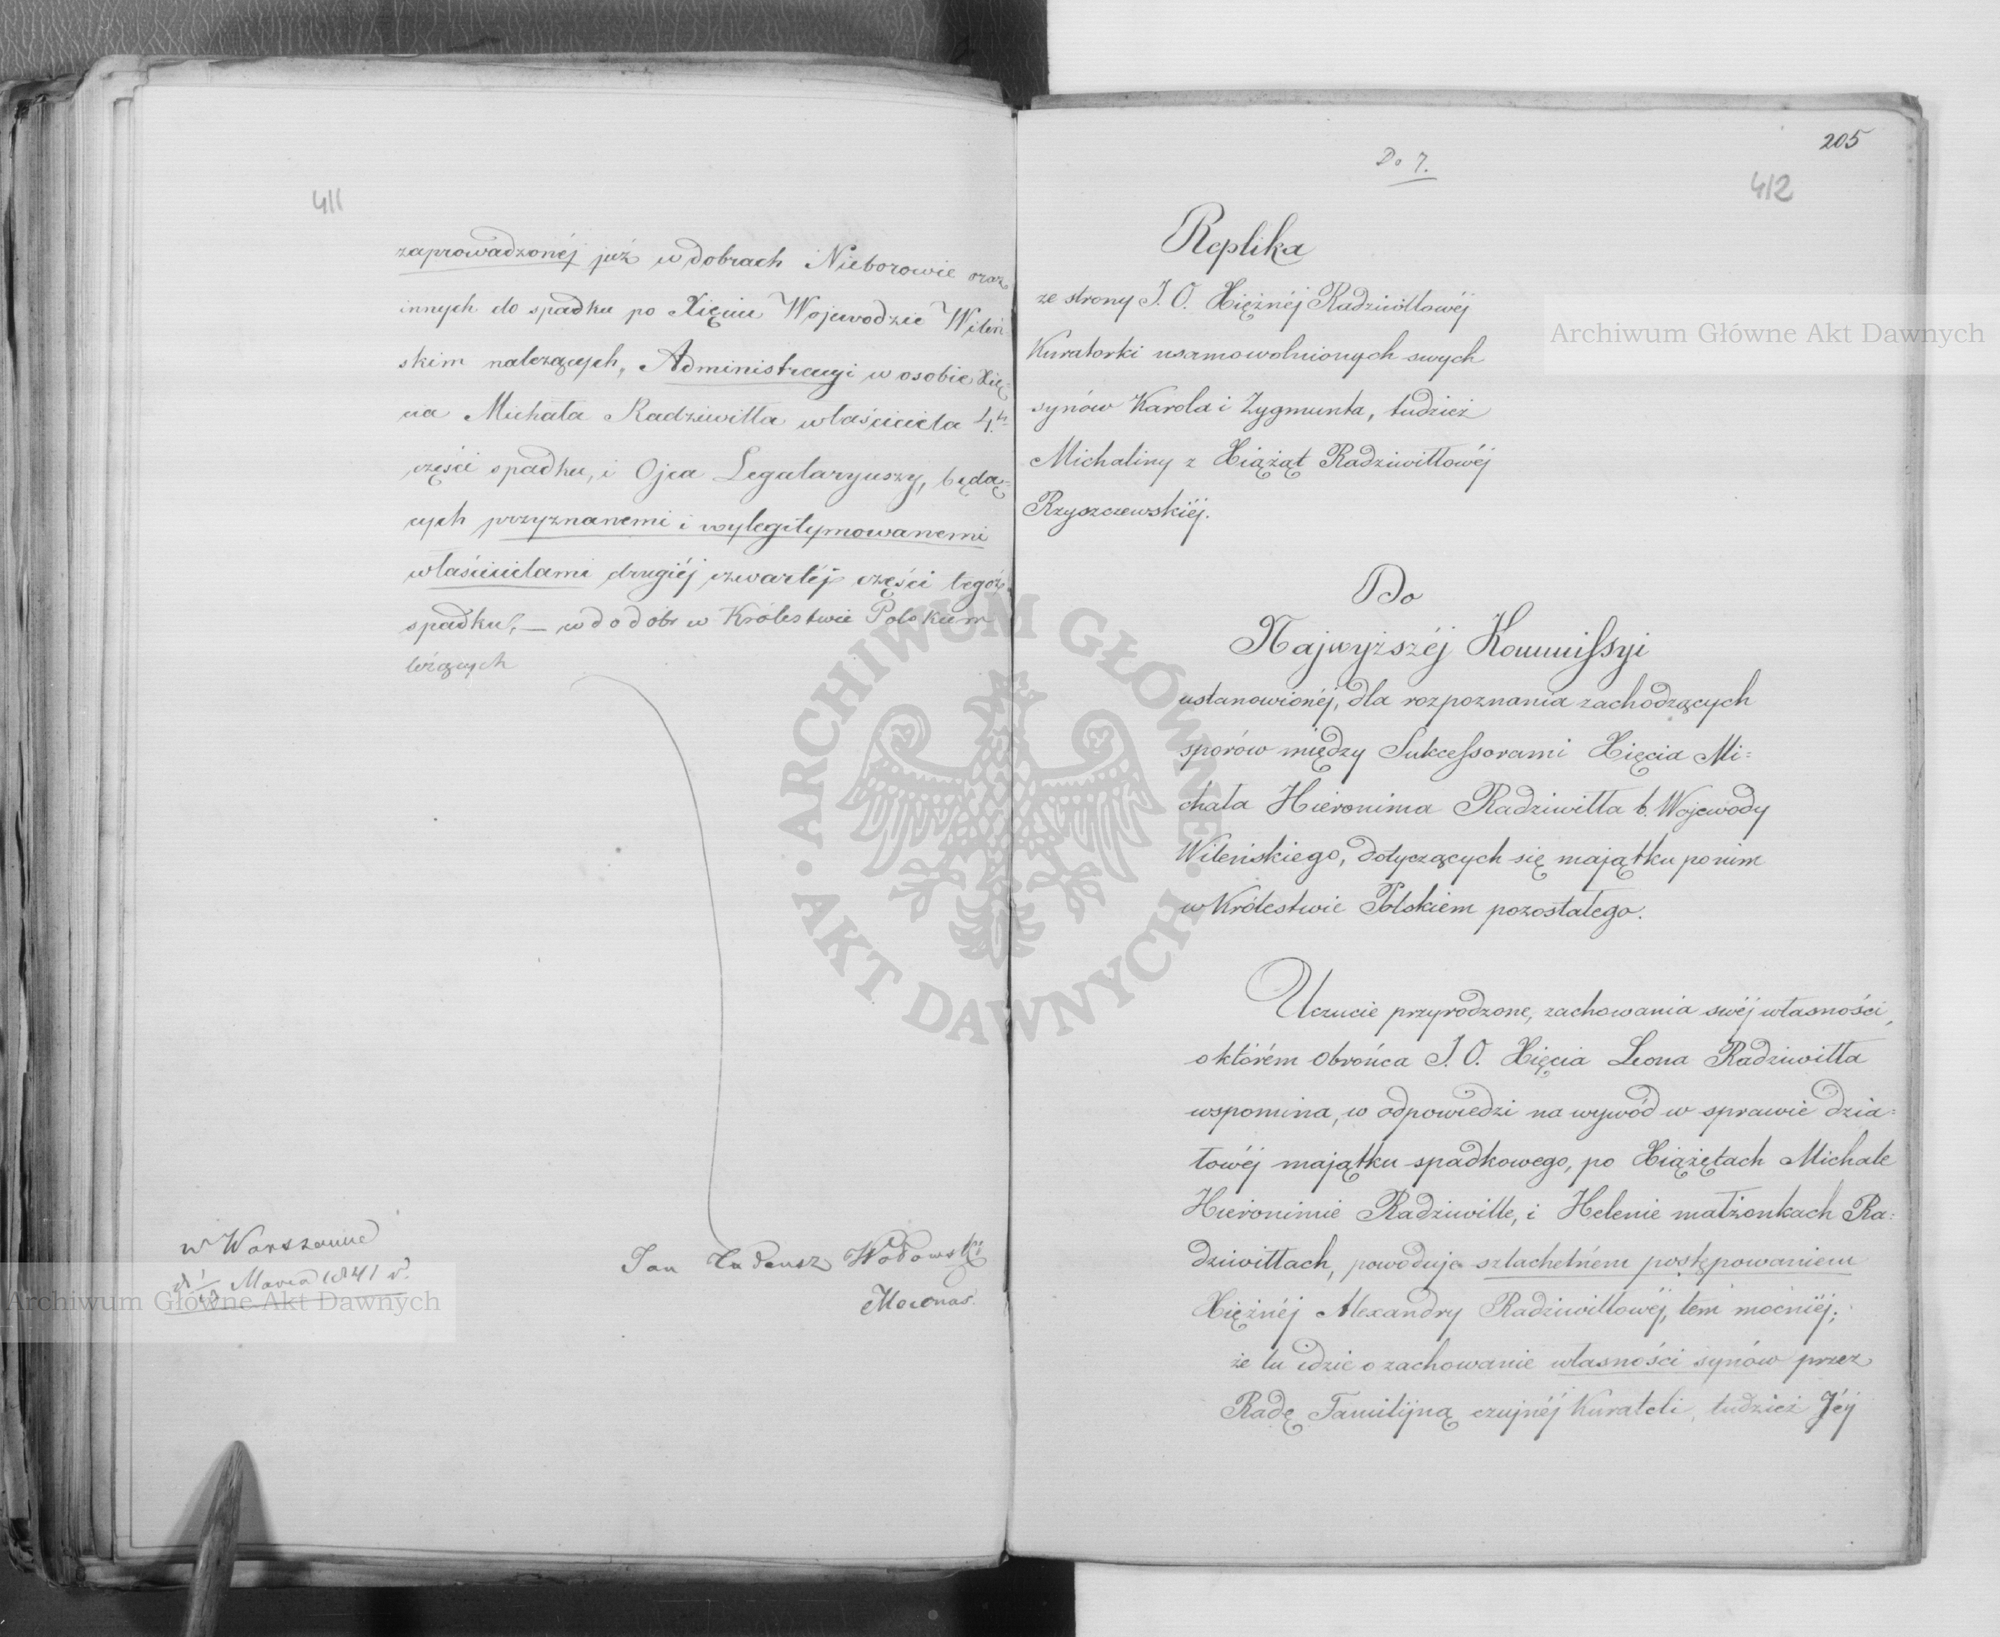 411
zaprowadzonéj już w dobrach Nieborowie oraz
innych do spadku po Xięciu Wojewodzie Wileń
skim należących, Administracyi w osobie Xię-
cia Michała Radziwiłła właściciela 4.
części spadku, i Ojca Legataryuszy, będą-
cych przyznanemi i wylegitymowanemi
właścicielami drugiéj czwartéj części tegoż
spadku, — w dobr w Królestwie Polskiem
leżących
w Warszawie
d. 1/13 Marca 1841 r.
Jan Tadeusz Wodowski
Mecenas.
205
Do 7.
412
Replika
ze strony J. O. Xiężnéj Radziwiłłowéj
Kuratorki usamowolnionych swych
synów Karola i Zygmunta, tudzież
Michaliny z Xiążąt Radziwiłłowéj
Rzyszczewskiéj.
Do
Najwyższéj Kommissyi
ustanowionéj, dla rozpoznania zachodzących
sporów między Sukcessorami Xięcia Mi-
chała Hieronima Radziwiłła b. Wojewody
Wileńskiego, dotyczących się majątku po nim
w Królestwie Polskiem pozostałego.
Uczucie przyrodzone, zachowania swéj własności,
o którém obrońca J. O. Xięcia Leona Radziwiłła
wspomina, w odpowiedzi na wywód w sprawie dzia-
łowéj majątku spadkowego, po Xiążętach Michale
Hieronimie Radziwille, i Helenie małżonkach Ra-
dziwiłłach, powoduje szlachetném postępowaniem
Xiężnéj Alexandry Radziwiłłowéj, tem mocniéj;
że tu idzie o zachowanie własności synów przez
Radę Familijną czujnéj Kurateli, tudzież Jéj
Archiwum Główne Akt Dawnych
Archiwum Główne Akt Dawnych
ARCHIWUM GŁÓWNE AKT DAWNYCH